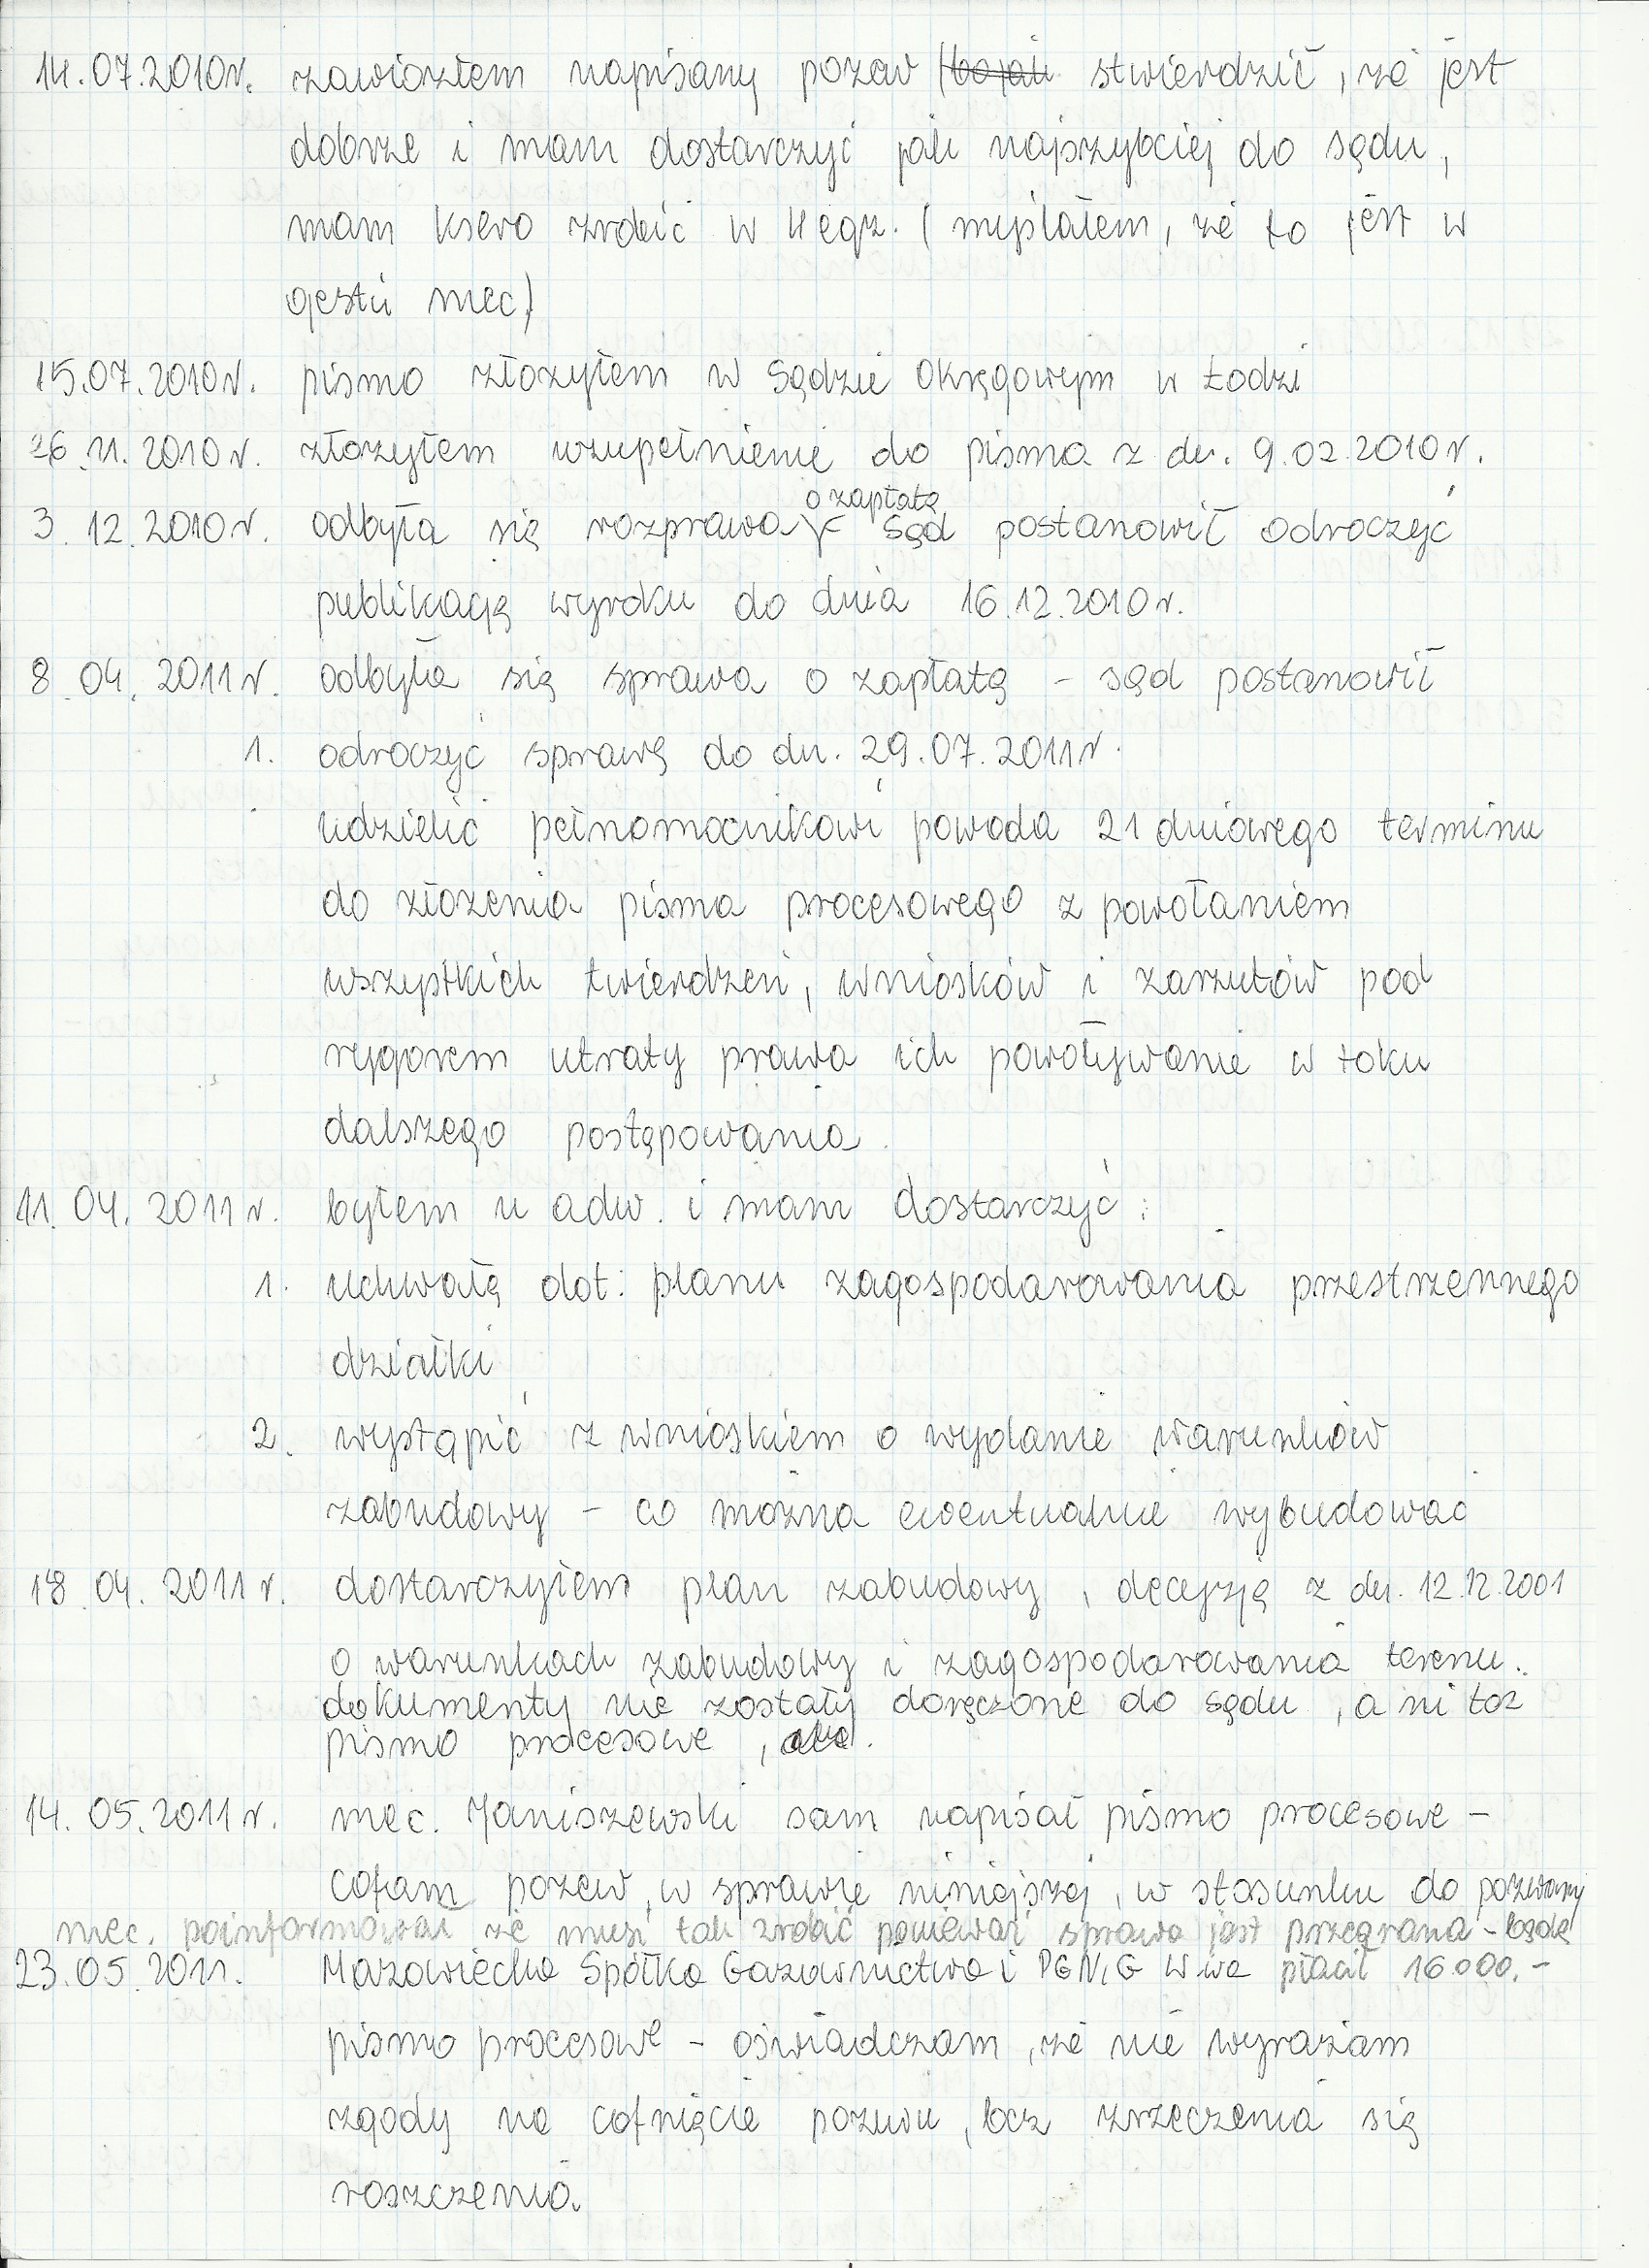 14.07.2010r. zawiozłem napisany pozew stwierdził, że jest
dobrze i mam dostarczyć jak najszybciej do sądu,
mam ksero zrobić w 4 egz. (myślałem, że to jest w
gestii mec.)
15.07.2010r. pismo złożyłem w Sądzie Okręgowym w Łodzi
26.11.2010r. złożyłem uzupełnienie do pisma z dn. 9.02.2010r.
o zapłatę
3.12.2010r. odbyła się rozprawa - Sąd postanowił odroczyć
publikację wyroku do dnia 16.12.2010r.
8.04.2011r. odbyła się sprawa o zapłatę - sąd postanowił
1. odroczyć sprawę do dn. 29.07.2011r.
udzielić pełnomocnikowi powoda 21 dniowego terminu
do złożenia pisma procesowego z powołaniem
wszystkich twierdzeń, wniosków i zarzutów pod
rygorem utraty prawa ich powoływanie w toku
dalszego postępowania.
11.04.2011r. byłem u adw. i mam dostarczyć:
1. uchwałę dot: planu zagospodarowania przestrzennego
działki
2. wystąpić z wnioskiem o wydanie warunków
zabudowy - co można ewentualnie wybudować
18.04.2011r. dostarczyłem plan zabudowy, decyzję z dn. 12.12.2001
o warunkach zabudowy i zagospodarowania terenu.
dokumenty nie zostały doręczone do sądu, a ni toż
pismo procesowe,
14.05.2011r. mec. Janiszewski sam napisał pismo procesowe -
cofam pozew, w sprawie niniejszej, w stosunku do pozwany
mec. poinformował że musi tak zrobić ponieważ sprawa jest przegrana - będę
23.05.2011. Mazowiecka Spółka Gazownictwa i PGNiG W-wa płacił 16000.-
pismo procesowe - oświadczam, że nie wyrażam
zgody na cofnięcie pozwu, bez zrzeczenia się
roszczenia.